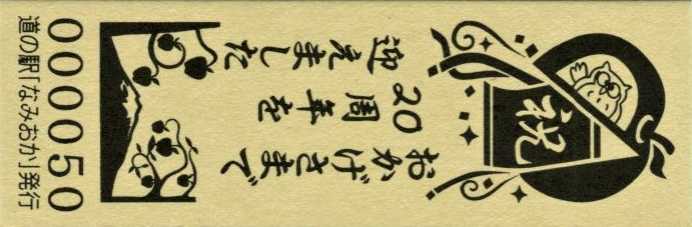 祝
おかげさまで
20周年を
迎えました
000050
道の駅「なみおか」発行